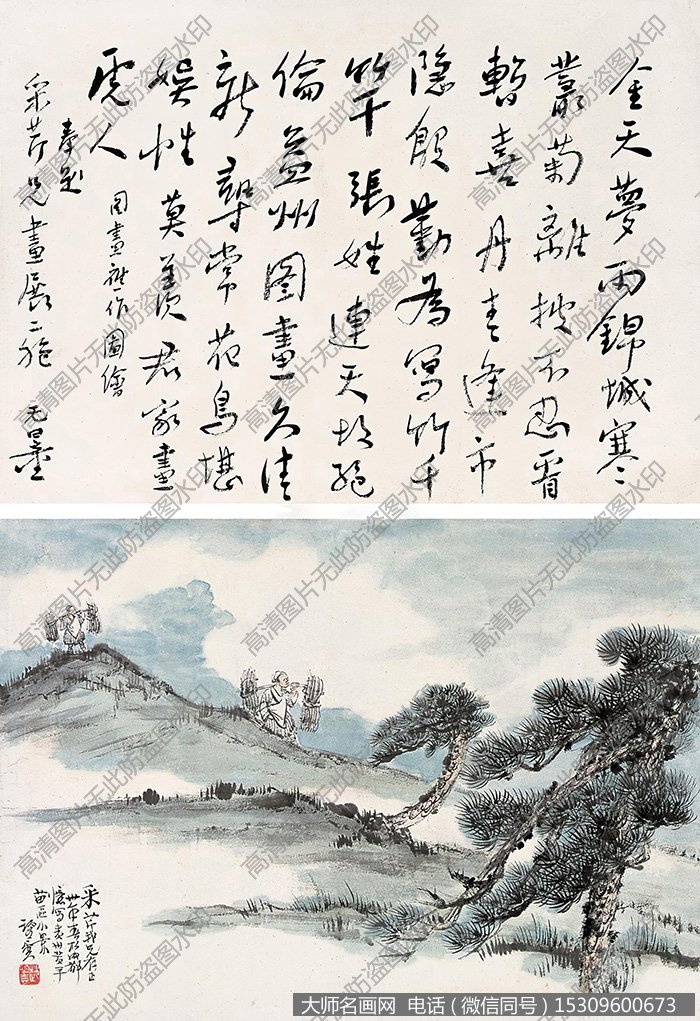 金天夢雨錦城寒
叢菊離披不忍看
暫喜丹青逢市
隱殷勤為寫竹千
竿張姓連天
倫益州圖畫久傳
新尋常花鳥堪
娛性莫羨君家畫
虎人
用畫 作圖繪
奉題
采芹兄畫展二絕 无量
采芹我兄
小景
高清图片无此防盗图水印
大师名画网 电话(微信同号)15309600673